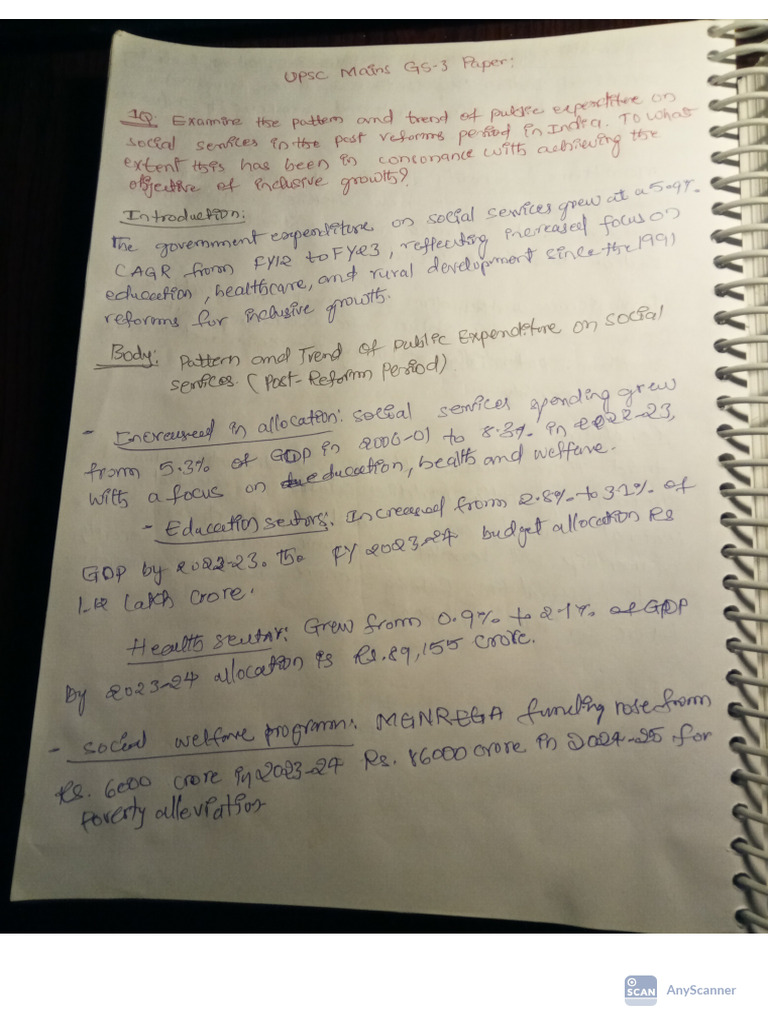 UPSC Mains GS-3 Paper:
1Q. Examine the pattern and trend of public expenditure on
social services in the post reforms period in India. To what
extent this has been in consonance with achieving the
objective of inclusive growth?
Introduction:
The government expenditure on social services grew at a 5.9%
CAGR from FY12 to FY23, reflecting increased focus on
education, healthcare, and rural development since the 1991
reforms for inclusive growth.
Body: Pattern and Trend of Public Expenditure on social
services. (Post-Reform Period)
- Increased in allocation: social services spending grew
from 5.3% of GDP in 2000-01 to 8.3% in 2022-23,
with a focus on education, health and welfare.
- Education sectors: Increased from 2.8% to 3.1% of
GDP by 2022-23. FY 2023-24 budget allocation Rs
1.12 lakh crore.
Health sector: Grew from 0.9% to 2.1% of GDP
By 2023-24 allocation is Rs.89,155 crore.
- social welfare program: MGNREGA funding rose from
Rs. 6000 crore in 2023-24 Rs. 86000 crore in 2024-25 for
Poverty alleviation
SCAN AnyScanner